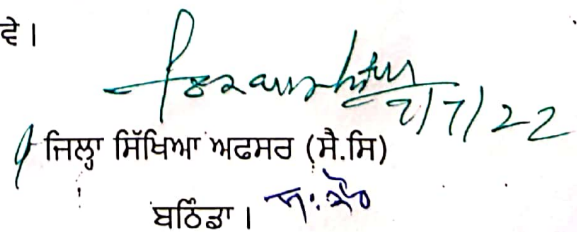 ਵੇ।
7/7/22
ਜਿਲ੍ਹਾ ਸਿੱਖਿਆ ਅਫਸਰ (ਸੈ.ਸਿ)
ਬਠਿੰਡਾ।